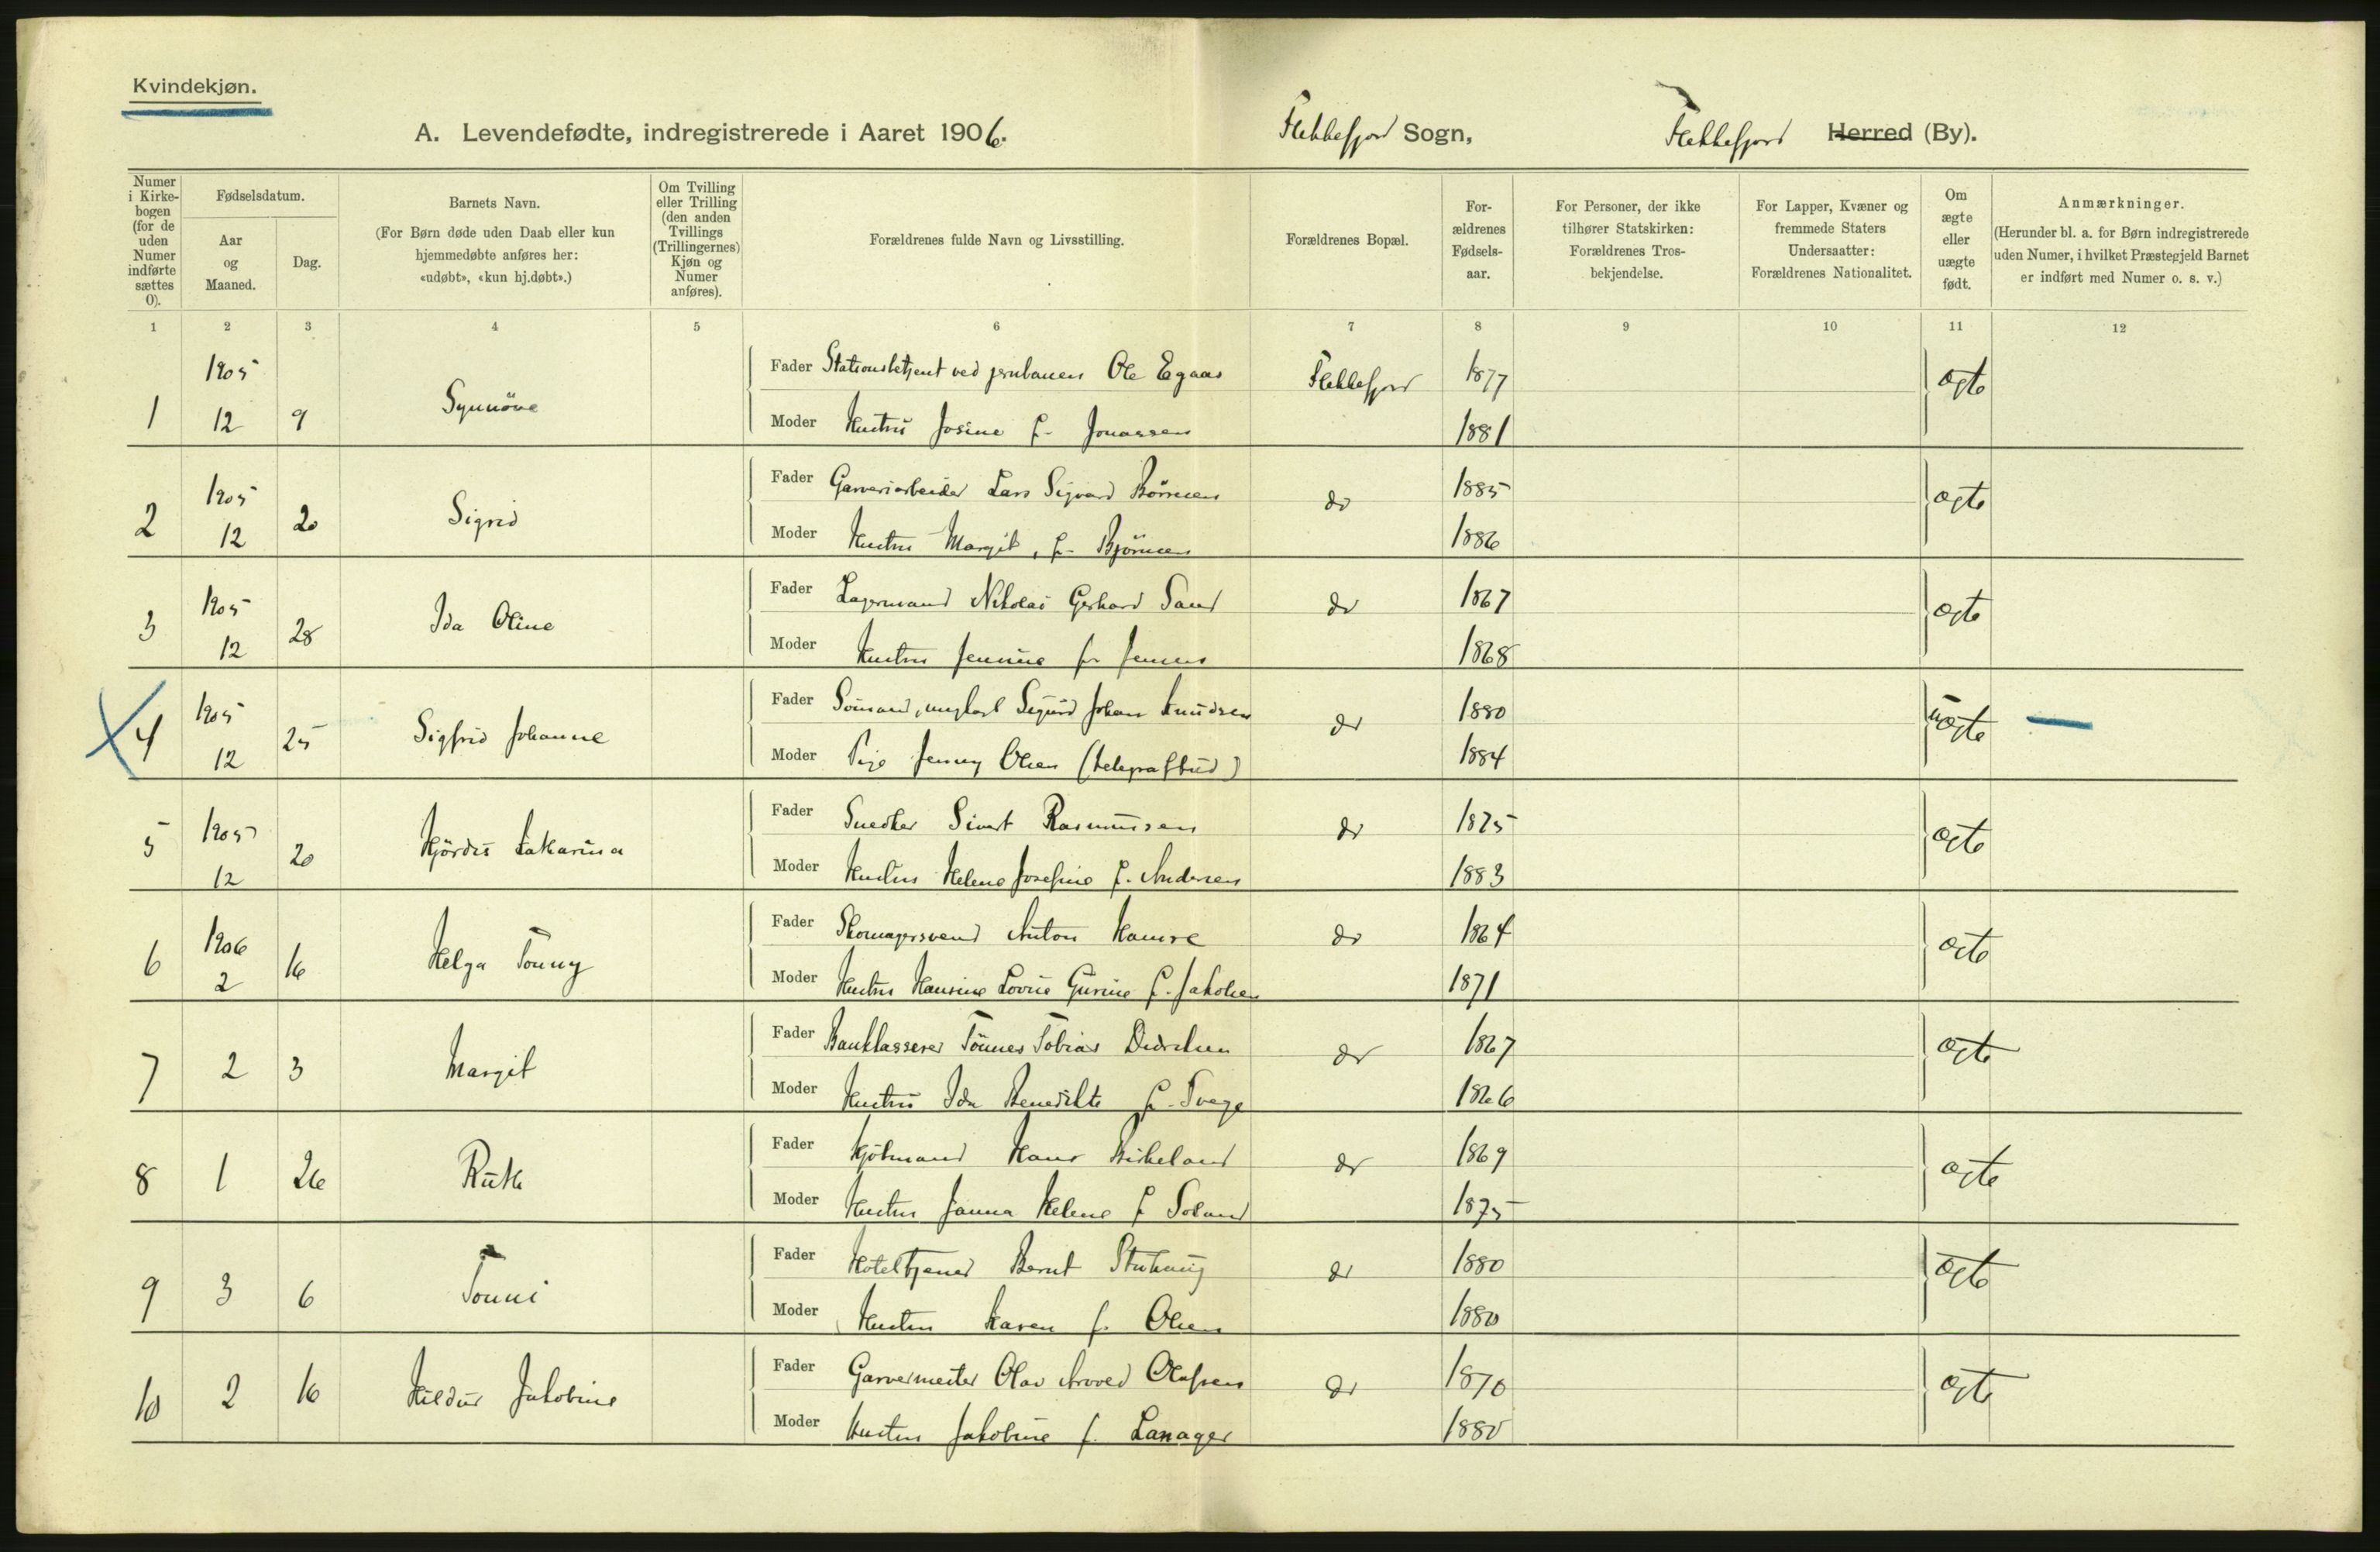 Kvindekjøn.
A. Levendefødte, indregistrerede i Aaret 1906. Flekkefjord Sogn, Flekkefjord Herred (By).
Numer i Kirkebogen (for de uden Numer indførte sættes 0).
Fødselsdatum.
Aar og Maaned.
Dag.
Barnets Navn.
(For Børn døde uden Daab eller kun hjemmedøbte anføres her: «udøbt», «kun hj.døbt».)
Om Tvilling eller Trilling (den anden Tvillings (Trillingernes) Kjøn og Numer anføres).
Forældrenes fulde Navn og Livsstilling.
Forældrenes Bopæl.
For-ældrenes Fødsels-aar.
For Personer, der ikke tilhører Statskirken: Forældrenes Tros-bekjendelse.
For Lapper, Kvæner og fremmede Staters Undersaatter: Forældrenes Nationalitet.
Om ægte eller uægte født.
Anmærkninger.
(Herunder bl. a. for Børn indregistrerede uden Numer, i hvilket Præstegjeld Barnet er indført med Numer o. s. v.)
1 2 3 4 5 6 7 8 9 10 11 12
1 1905 12 9 Synnöve
Fader Stationsbetjent ved jernbanen Ole Egaas Flekkefjord 1877 ægte
Moder Hustru Josine f. Jonassen 1881
2 1905 12 20 Sigrid
Fader Garveriarbeider Lars Sigvard 1885 do ægte
Moder Hustru Margit, f. Björnsen 1886
3 1905 12 28 Ida Oline
Fader Lagermand Nikolai Gerhard Sand do 1867 ægte
Moder Hustru Jensine f. Jensen 1868
4 1905 12 25 Sigfrid Johanne
Fader Sömand, ungkarl Sigurd Johan Knudsen do 1880 uægte
Moder Pige Jenny Olsen (telegrafbud) 1884
5 1905 12 20 Hjördis Katharina
Fader Snedker Sivert Rasmussen do 1875 ægte
Moder Hustru Helene Josefine f. Andersen 1883
6 1906 2 16 Helga Tonny
Fader Skomagersvend Anton Hamre do 1864 ægte
Moder Hustru Hansine Lovise Gurine f. Jakobsen 1871
7 2 3 Margit
Fader Bankkasserer Tönnes Tobias Didriksen do 1867 ægte
Moder Hustru Ida Benedikte f. Tvege 1866
8 1 26 Ruth
Fader Kjöbmand Hans Birkeland do 1869 ægte
Moder Hustru Janna Helene f. Soland 1875
9 3 6 Tonni
Fader Hoteltjener Bernt do 1880 ægte
Moder Hustru Karen f. Olsen 1880
10 2 16 Hildur Jakobine
Fader Garvermester Olav Arved Olafsen do 1870 ægte
Moder Hustru Jakobine f. Lanager 1880